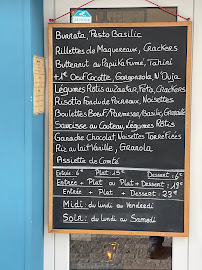 Burrata, Pesto Basilic
Rillettes de Maquereaux, Crackers
Butternut au Paprika Fumé, Tahini
+1€ Oeuf Cocotte, Gorgonzola, N'Duja
Légumes Rôtis au Zaatar, Feta, Crackers
Risotto Fondu de Poireaux, Noisettes
Boulettes Boeuf/Parmesan, Basilic, Granola
Saucisse au Couteau, Légumes Rôtis
Ganache Chocolat, Noisettes Torréfiées
Riz au lait Vanille, Granola
Assiette de Comté
Entrée : 6€ Plat : 15€ Dessert : 6€
Entrée + Plat ou Plat + Dessert : 19€
Entrée + Plat + Dessert : 23€
Midi : du lundi au Vendredi
Soir : du lundi au Samedi